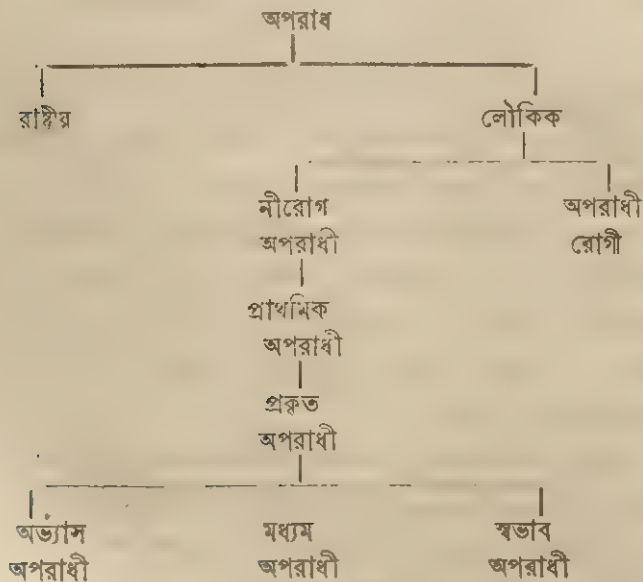 অপরাধ
রাষ্ট্রীয় লৌকিক
নীরোগ অপরাধী
অপরাধী রোগী
প্রাথমিক
অপরাধী
প্রকৃত
অপরাধী
অভ্যাস মধ্যম স্বভাব
অপরাধী অপরাধী অপরাধী